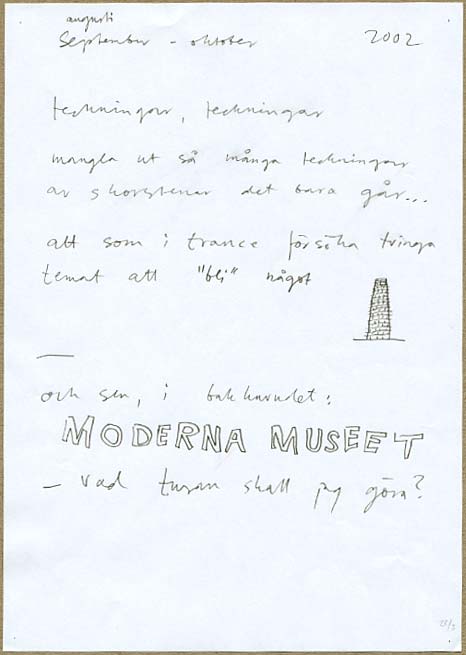 augusti
September - oktober 2002
teckningar, teckningar
mangla ut så många teckningar
av skorstenar det bara går...
att som i trance försöka tvinga
temat att "bli" något
och sen, i bakhuvudet:
MODERNA MUSEET
- vad tusan skall jag göra?